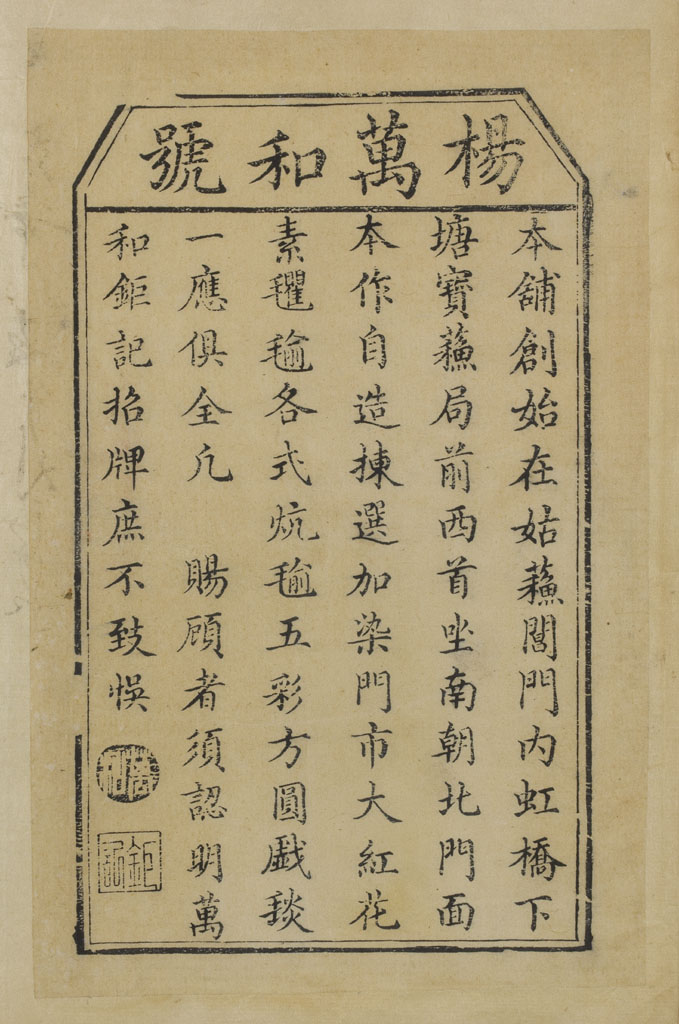 楊萬和號
本舖創始在姑蘓閶門內虹橋下
塘寶蘓局前西首坐南朝北門面
本作自造揀選加染門市大紅花
素氍毹各式炕毹五彩方圓戱毯
一應俱全凡　賜顧者須認明萬
和鉅記招牌庶不致悞
萬和
鉅記